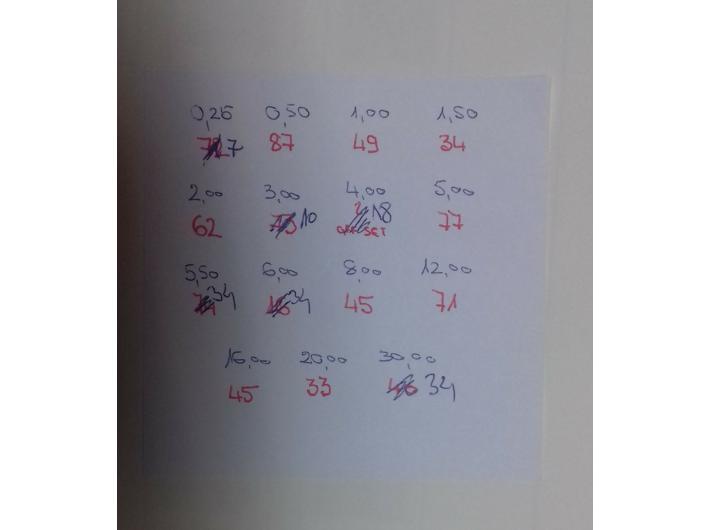 0,25 0,50 1,00 1,50
7 87 49 34
2,00 3,00 4,00 5,00
62 10 18 77
OFF SET
5,50 6,00 8,00 12,00
34 34 45 71
16,00 20,00 30,00
45 33 34